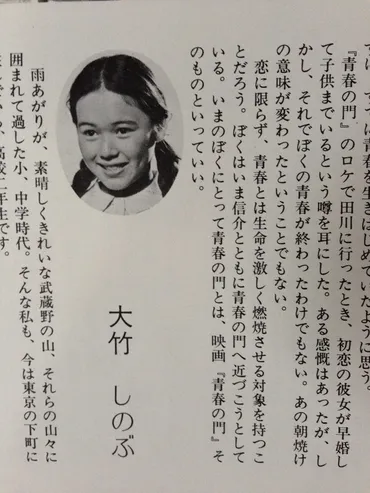 青春を生きはじめていたように思う。
『青春の門』のロケで田川に行ったとき、初恋の彼女が早婚し
て子供までいるという噂を耳にした。ある感慨はあったが、し
かし、それでぼくの青春が終わったわけでもない。あの朝焼け
の意味が変わったということでもない。
恋に限らず、青春とは生命を激しく燃焼させる対象を持つこ
とだろう。ぼくはいま信介とともに青春の門へ近づこうとして
いる。いまのぼくにとって青春の門とは、映画『青春の門』そ
のものといっていい。
大竹 しのぶ
雨あがりが、素晴しくきれいな武蔵野の山、それらの山々に
囲まれて過した小、中学時代。そんな私も、今は東京の下町に
高校二年生です。